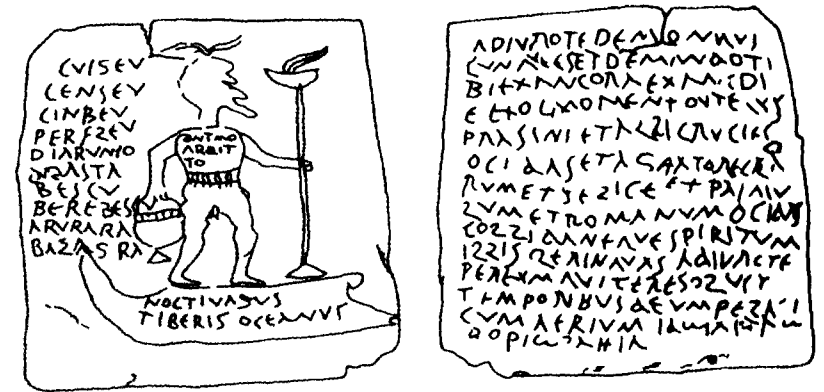 CVISEV
CENSEV
CINBEV
PERFLEV
DIARVNCO
DEASTA
BESCV
BEREBESCV
ARVRARA
BAZAGRA
ANTMO
ARAIT
TO
NOCTIVAGVS
TIBERIS OCEANVS
ADIVROTEDEMONQVI
CVNQVEESETDEMANDOTI
BIEXANCORAEXANCDI
EEXOCMOMENTOVTEQVOS
PRASINIETALBICRVCIES
OCIDASETAGITATORECLA
RVMETFELICEETPRIMV
LVMETROMANVMOCIDAS
COLLIDANEQVESPIRITVM
ILLISLERINQVASADIVROTE
PEREVMQVITERESOLVIT
TEMPORIBVSDEVMPELAGI
CVMAERIVM